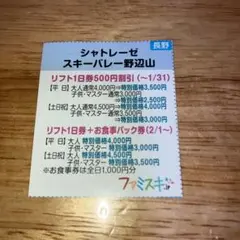 長野
シャトレーゼ
スキーバレー野辺山
リフト1日券500円割引(～1/31)
【平 日】大人通常4,000円⇒特別価格3,500円
子供・マスター通常3,000円
⇒特別価格2,500円
【土日祝】大人通常4,500円⇒特別価格4,000円
子供・マスター通常3,500円
⇒特別価格3,000円
リフト1日券+お食事パック券(2/1～)
【平 日】大人 特別価格4,000円
子供・マスター 特別価格3,000円
【土日祝】大人 特別価格4,500円
子供・マスター 特別価格3,500円
※お食事券は全日1,000円分
ファミスキ